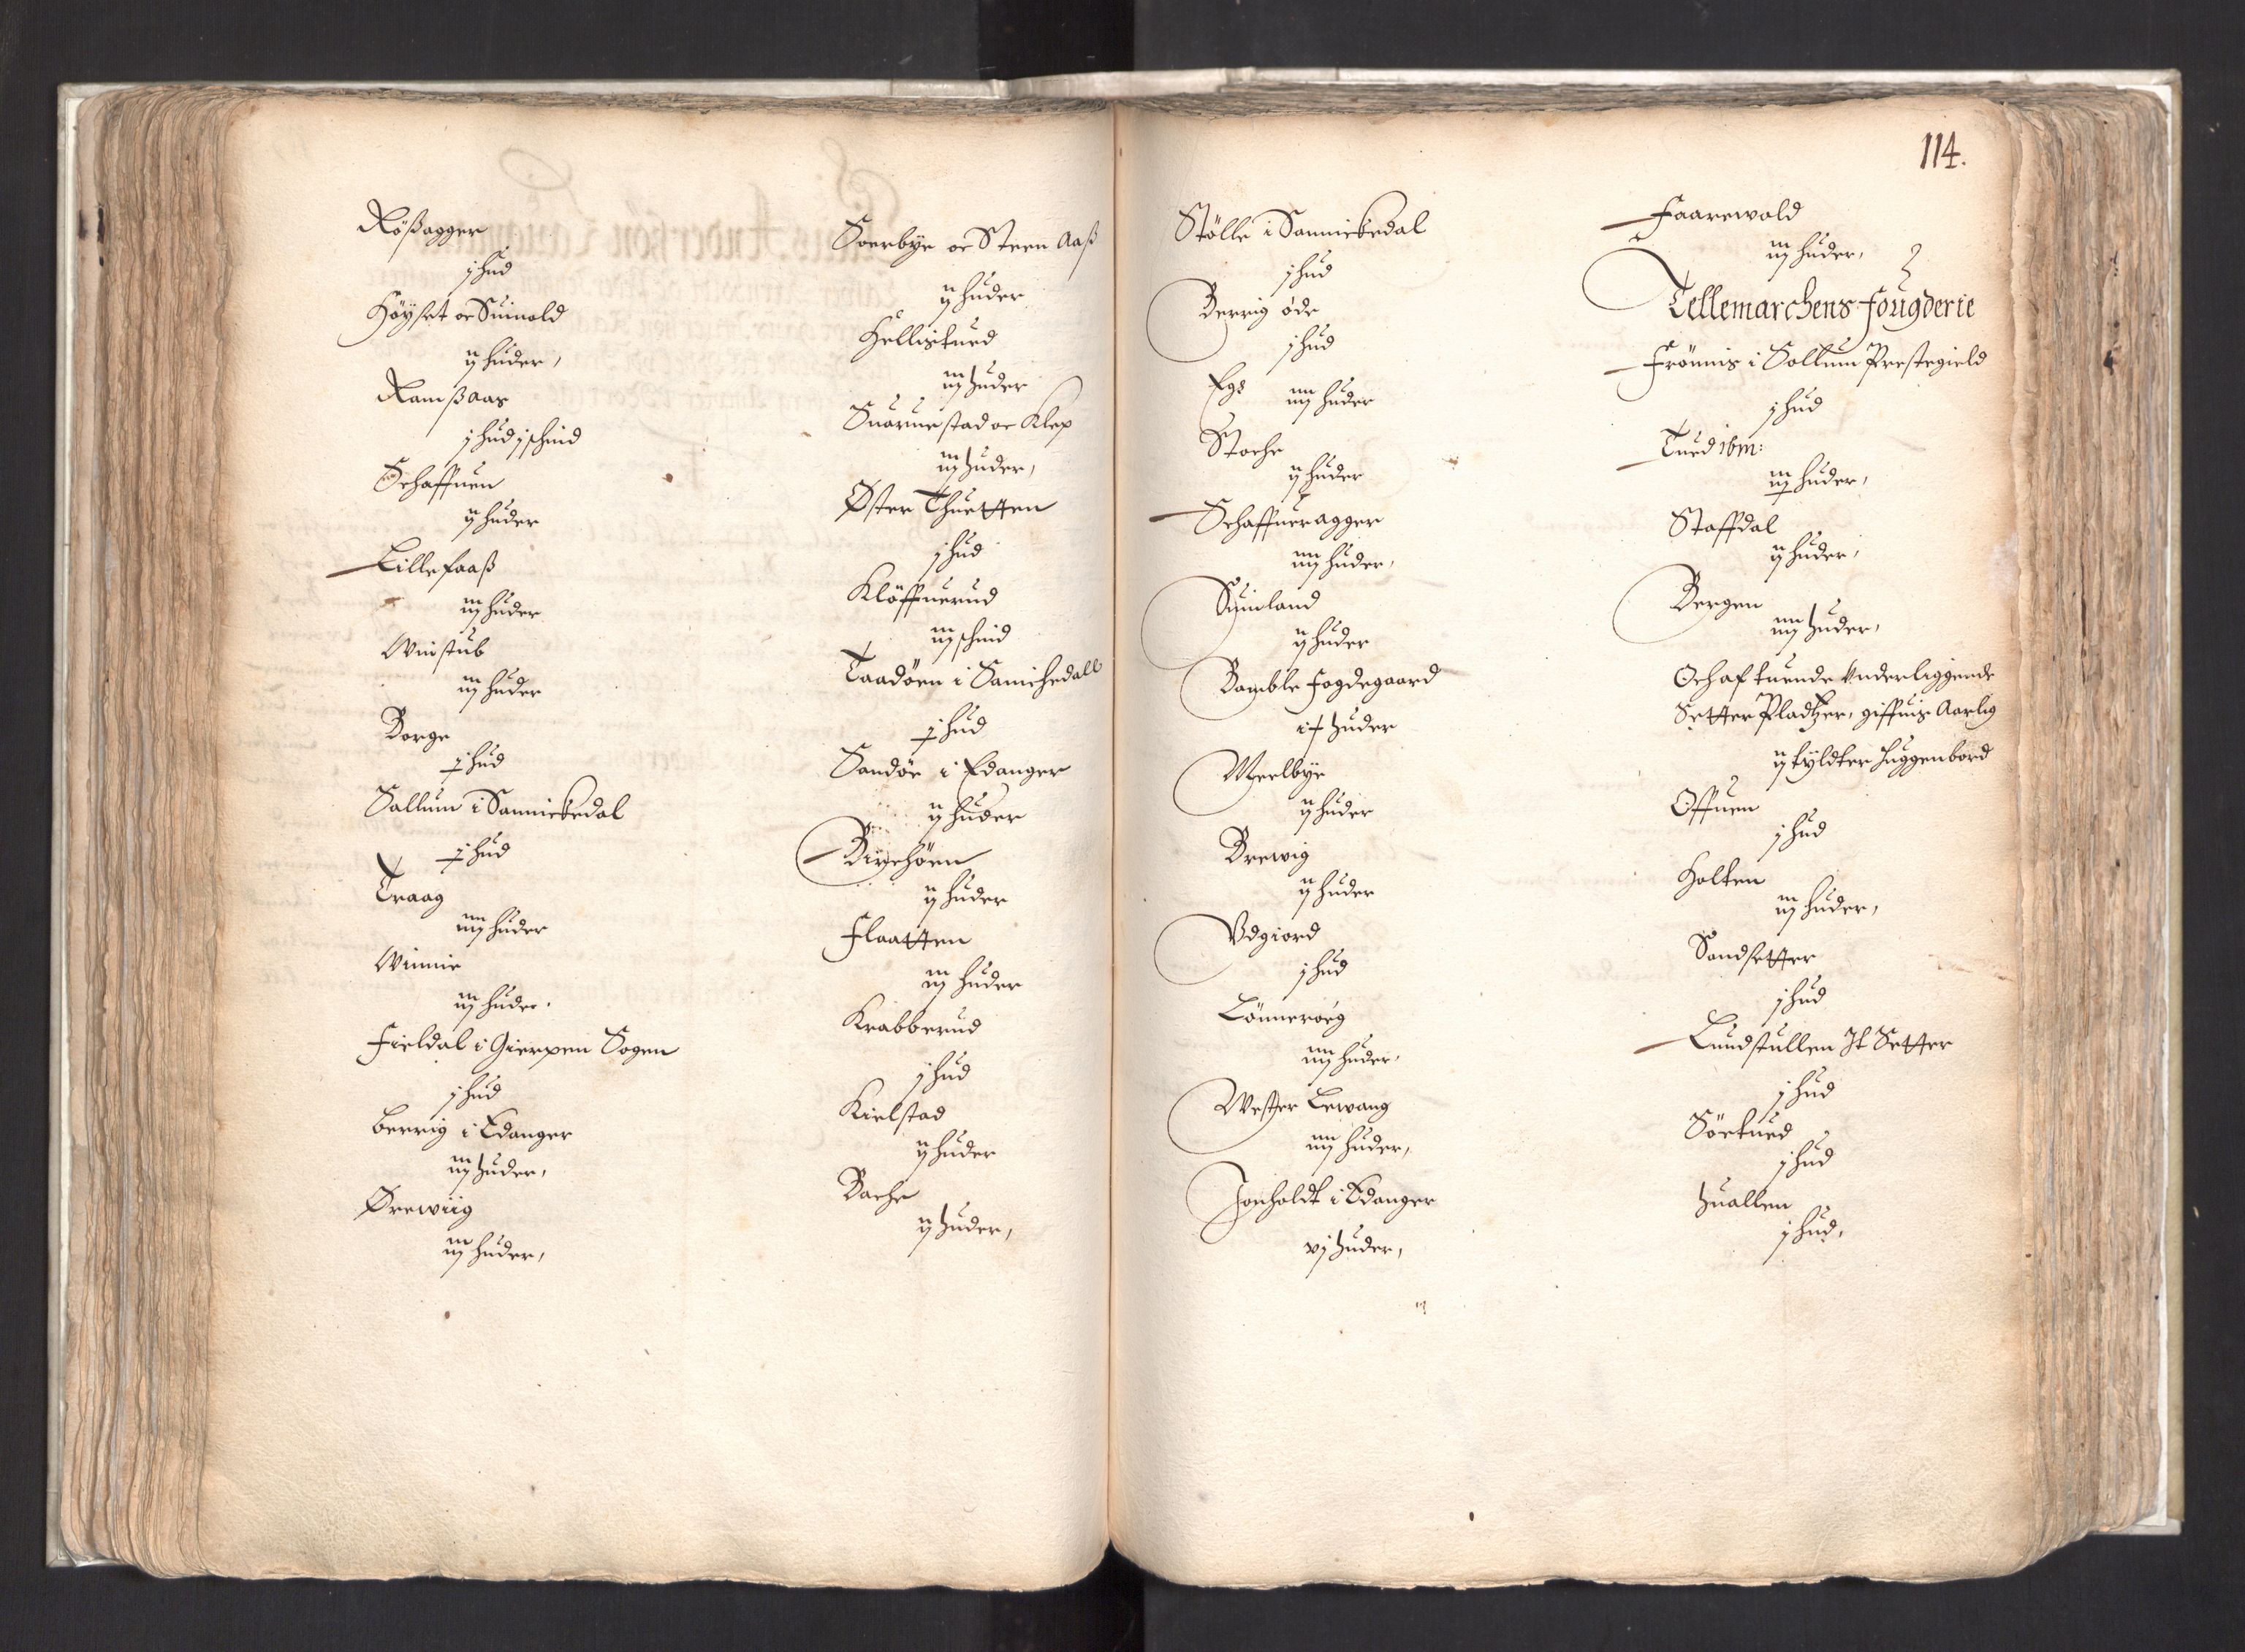 Rößagger
j hud
Höyset oc Suinold
ij huder,
Ramßaas
j hud j schind
Schaffuen
ij huder
Lillefaaß
iij huder
Winstub
iij huder
Borge
j hud
Sallum i Sannickedal
j hud
Traag
iiij huder
Winnie
iij huder.
Fieldal i Gierpen Sogen
j hud
Berrig i Edanger
iij huder,
Ørewiig
iij huder,
Soerbye oc Steen Aaß
ij huder
Hellistued
iij huder
Suaruestad oc Klep
iij huder,
Øster Thuetten
j hud
Klöffuerud
iij schind
Taadöen i Sanichedall
j hud
Sandöe i Edanger
ij huder
Birchöen
ij huder
Flaatten
iij huder
Krabberud
j hud
Kielstad
ij huder
Bache
ij huder,
114.
Stölle i Sannickedal
j hud
Berrig øde
j hud
Egs
iiij huder
Stoche
ij huder
Schaffueragger
iiij huder,
Suinland
ij huder
Bamble fogdegaard
ix huder
Meelbye
ij huder
Brewig
ij huder
Vdgiord
j hud
Lönneroeg
iiij huder,
Wester Lewang
iiij huder,
Jonholdt i Edanger
vj huder,
Faarewald
iij huder,
Tellemarchens fougderie
Frönnis i Sollum Prestegield
j hud
Tued ibm:
iij huder,
Staffdal
ij huder,
Bergen
iiij huder,
Och af tuende Underliggende
Setter Pladtzer, giffuis Aarlig
ij tyldter huggenbord
Offuen
j hud
Holten
iij huder,
Sandsetter
j hud
Lundstullen It Setter
j hud
Sörtued
j hud
Huallen
j hud,